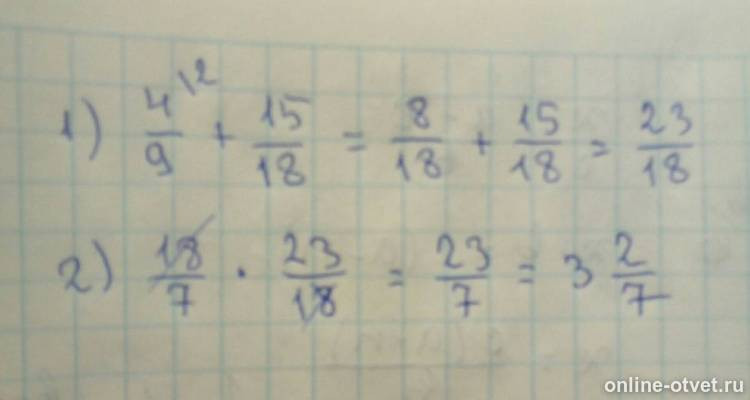 1) 4/9 \2 + 15/18 = 8/18 + 15/18 = 23/18
2) 18/7 · 23/18 = 23/7 = 3 2/7
online-otvet.ru